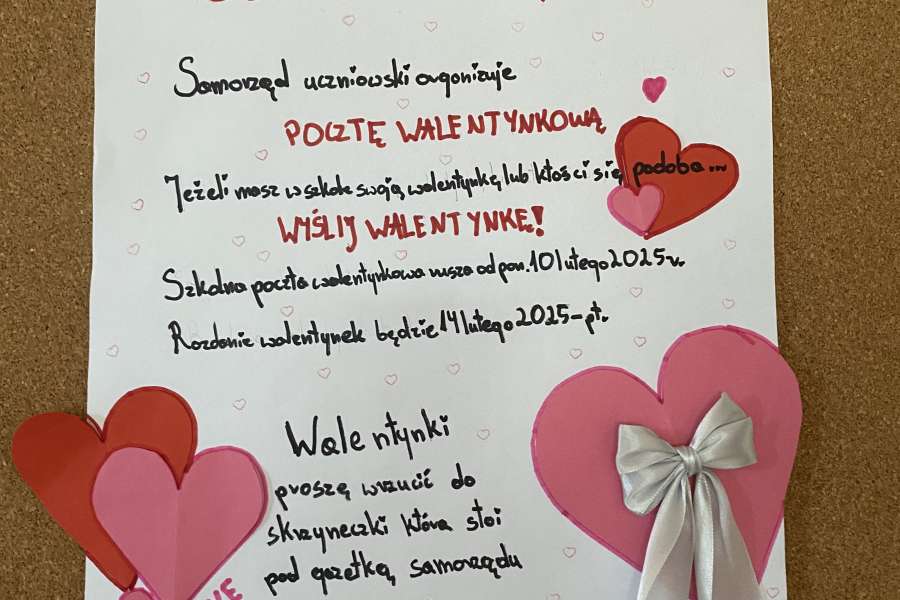 Samorząd uczniowski organizuje
POCZTĘ WALENTYNKOWĄ
Jeżeli masz w szkole swoją walentynkę lub ktoś ci się podoba...
WYŚLIJ WALENTYNKĘ!
Szkolna poczta walentynkowa rusza od pon. 10 lutego 2025 r.
Rozdanie walentynek będzie 14 lutego 2025 - pt.
Walentynki
proszę wrzucić do
skrzyneczki która stoi
pod gazetką samorządu